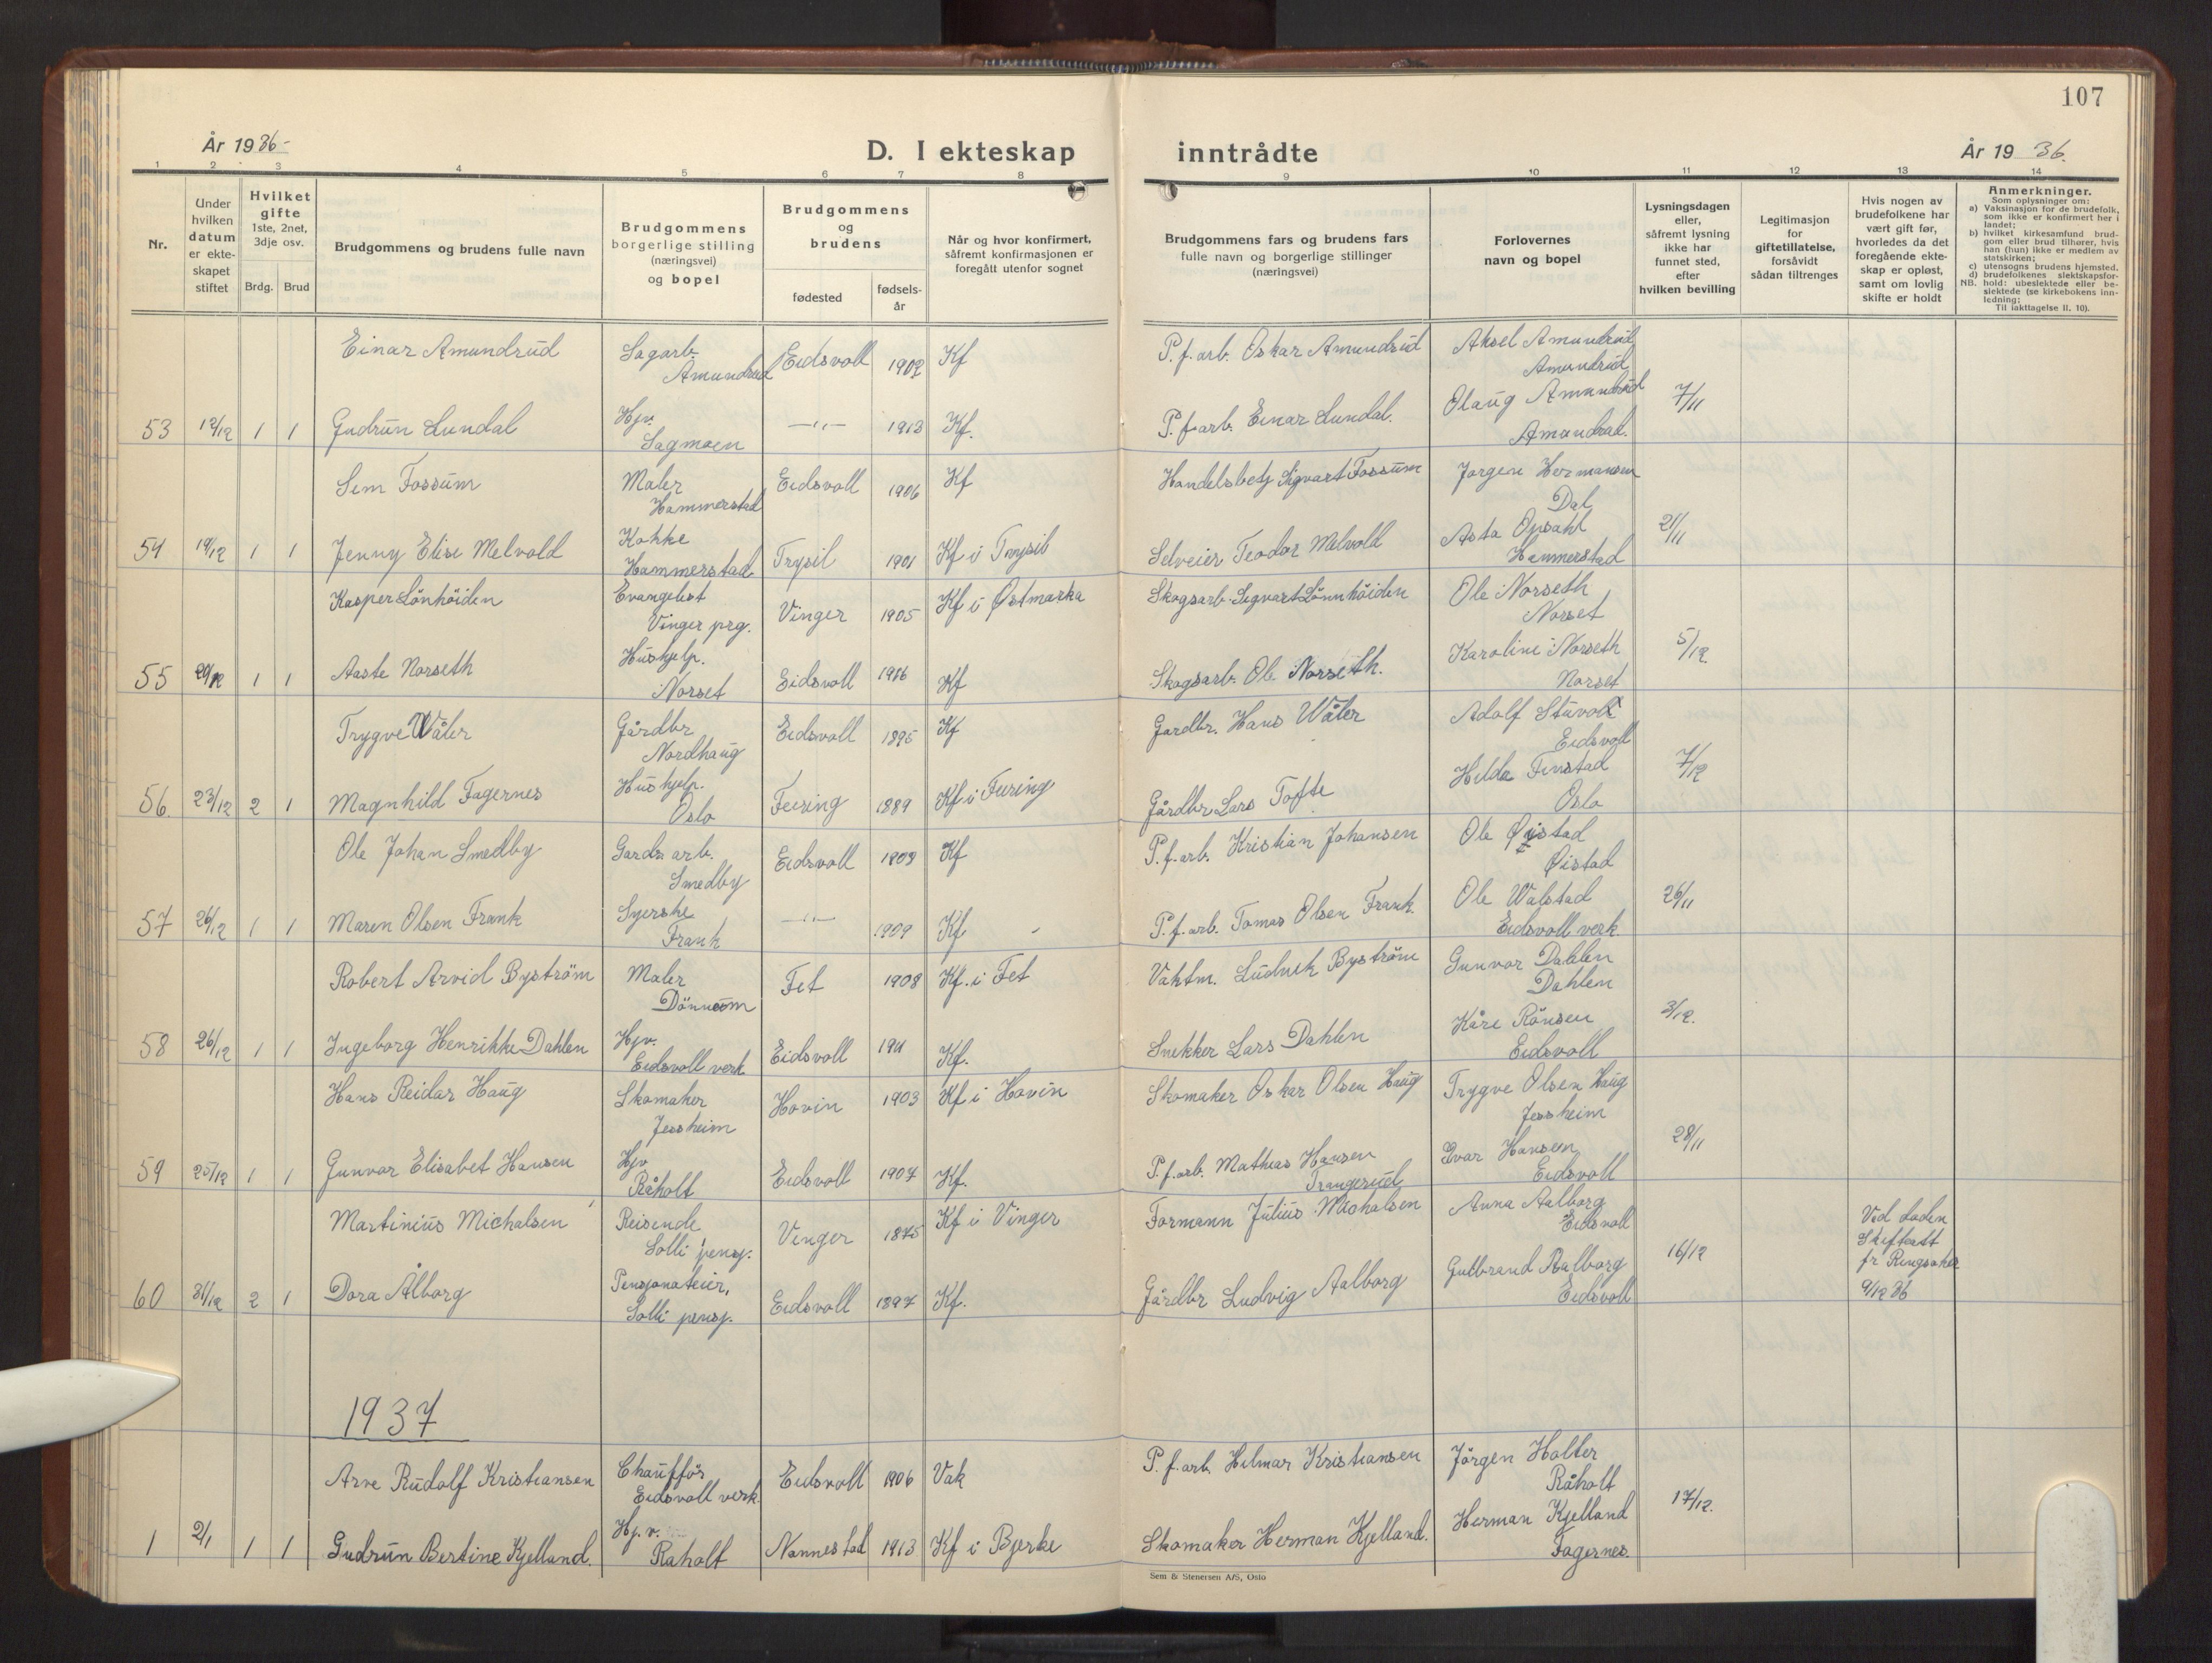 107
År 1936-
D. I ekteskap inntrådte
År 1936.
1 2 3 4 5 6 7 8 9 10 11 12 13 14
Nr.
Under hvilken datum er ekteskapet stiftet
Hvilket gifte 1ste, 2net, 3dje osv.
Brdg. Brud
Brudgommens og brudens fulle navn
Brudgommens borgerlige stilling (næringsvei) og bopel
Brudgommens og brudens
fødested
fødselsår
Når og hvor konfirmert, såfremt konfirmasjonen er foregått utenfor sognet
Brudgommens fars og brudens fars fulle navn og borgerlige stillinger (næringsvei)
Forlovernes navn og bopel
Lysningsdagen eller, såfremt lysning ikke har funnet sted, efter hvilken bevilling
Legitimasjon for giftetillatelse, forsåvidt sådan tiltrenges
Hvis nogen av brudefolkene har vært gift før, hvorledes da det foregående ekteskap er opløst, samt om lovlig skifte er holdt
Anmerkninger.
Som oplysninger om:
a) Vaksinasjon for de brudefolk, som ikke er konfirmert her i landet;
b) hvilket kirkesamfund brudgom eller brud tilhører, hvis han (hun) ikke er medlem av statskirken;
c) utensogns brudens hjemsted.
d) brudefolkenes slektskapsforhold: ubeslektede eller beslektede (se kirkebokens innledning;
NB. Til iakttagelse II. 10).
Einar Amundrud Sagarb. Amundrud Eidsvoll 1902 Kf P.f.arb. Oskar Amundrud Aksel Amundrud Amundrud
53 12/12 1 1 Gudrun Lundal Hjv. Sagmoen —"— 1913 Kf. P.f.arb. Einar Lundal. Olaug Amundrud Amundrud. 7/11
Sem Fossum Maler Hammerstad Eidsvoll 1906 Kf Handelsbetj Sigvart Fossum Jørgen Hermansen Dal
54 19/12 1 1 Jenny Elise Melvold Kokke Hammerstad Trysil 1901 Kf i Trysil Selveier Teodor Melvold Asta Opsahl Hammerstad 21/11
Kasper Lönhöiden Evangelist Vinger prg. Vinger 1905 Kf i Østmarka Skogsarb. Sigvart Lönnhöiden Ole Norseth Norset
55 1 1 Aaste Norseth Hushjelp. Norset Eidsvoll Kf Skogsarb. Ole Norseth. Karoline Norseth Norset 5/12.
Trygve Wåler Gårdbr Nordhaug Eidsvoll 1895 Kf Gardbr. Hans Wåler Adolf Stuvoll Eidsvoll
56. 23/12 2 1 Magnhild Fagernes Hushjelp. Oslo Feiring 1889 Kf i Feiring Gårdbr Lars Tofte Hilda Finstad Oslo 7/12
Ole Johan Smedby Gardsarb. Smedby Eidsvoll 1909 Kf P.f.arb. Kristian Johansen Ole Øistad Øistad
57 26/12 1 1 Maren Olsen Frank Syerske Frank —"— 1909 Kf P.f.arb. Tomas Olsen Frank. Ole Walstad Eidsvoll verk. 26/11
Robert Arvid Byström Maler Dönnum Fet 1908 Kf. i Fet Vaktm. Ludvik Byström Gunvor Dahlen Dahlen
58 26/12 1 1 Ingeborg Henrikke Dahlen Hjv. Eidsvoll verk Eidsvoll 1911 Kf. Snekker Lars Dahlen Kåre Rönsen Eidsvoll 3/12.
Hans Reidar Haug Skomaker Jessheim Hovin 1903 Kf i Hovin Skomaker Oskar Olsen Haug Trygve Olsen Haug Jessheim
59 25/12 1 1 Gunvor Elisabet Hansen Hjv Råholt Eidsvoll 1907 Kf. P.f.arb. Mathias Hansen Trangerud Ivar Hansen Eidsvoll 28/11
Martinius Michalsen Reisende Solli pensj. Vinger 1875 Kf i Vinger Formann Julius Michalsen Anna Aalborg Eidsvoll
60 31/12 2 1 Dora Ålborg Pensjonateier, Solli pensj. Eidsvoll 1897 Kf. Gårdbr Ludvig Aalborg Gulbrand Aalborg Eidsvoll 16/12 Ved döden Skifteatt fr Ringsaker 9/12 36
1937
Arve Rudolf Kristiansen Chaufför Eidsvoll verk. Eidsvoll 1906 Vak P.f.arb. Hilmar Kristiansen Jörgen Holter Råholt
1 2/1 1 1 Gudrun Bertine Kjelland. Hj.v. Raholt Nannestad 1913 Kf i Bjerke Skomaker Herman Kjelland. Herman Kjelland Fagernes. 17/12.
Sem & Stenersen A/S, Oslo